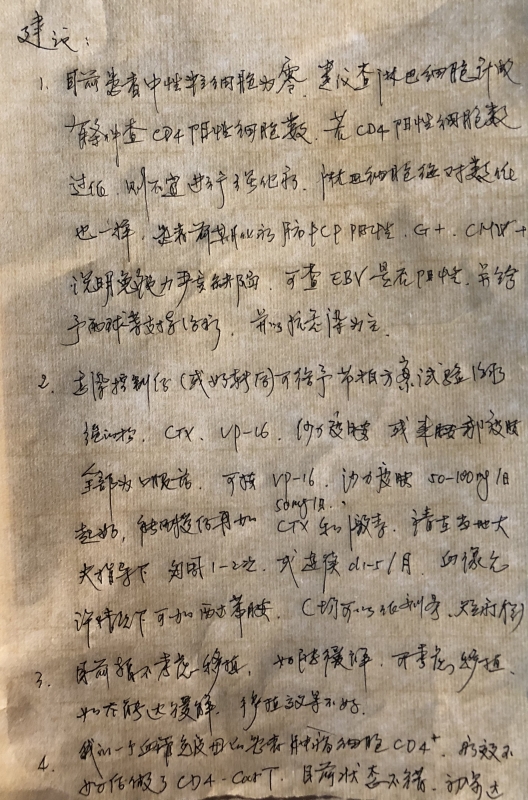 建议：
1. 目前患者中性粒细胞为零，建议查淋巴细胞计数
有条件查CD4阳性细胞数，若CD4阳性细胞数
过低，则不宜进行强化疗，淋巴细胞绝对数低
也一样，患者前期化疗肺PCP阳性，G+，CMV+
说明免疫力严重缺陷，可查EBV是否阳性，并给
予丙球等支持治疗，并以抗感染为主。
2. 感染控制后（或好转后）可给予节拍方案试验治疗
VP-16，沙利度胺 或 来那度胺
全部为口服药，可按 VP-16，沙利度胺 50-100mg/日
50mg/日，
起始，能耐受后再加 CTX 和 请在当地大
夫指导下 每周1-2次，或连续 d1-5/月，血像允
许情况下可加西达苯胺，
3. 目前暂不考虑移植，如能缓解，可考虑移植，
如不能达缓解，移植效果不好。
4. 我们一个 患者肿瘤细胞CD4+，疗效不
好后做了CD4-CarT，目前状态不错，